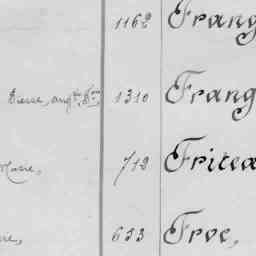 1162 Frang
Pierre, aug.te D.que, 1310 Frang
Marie, 712 Fritea
re, 633 Froc,